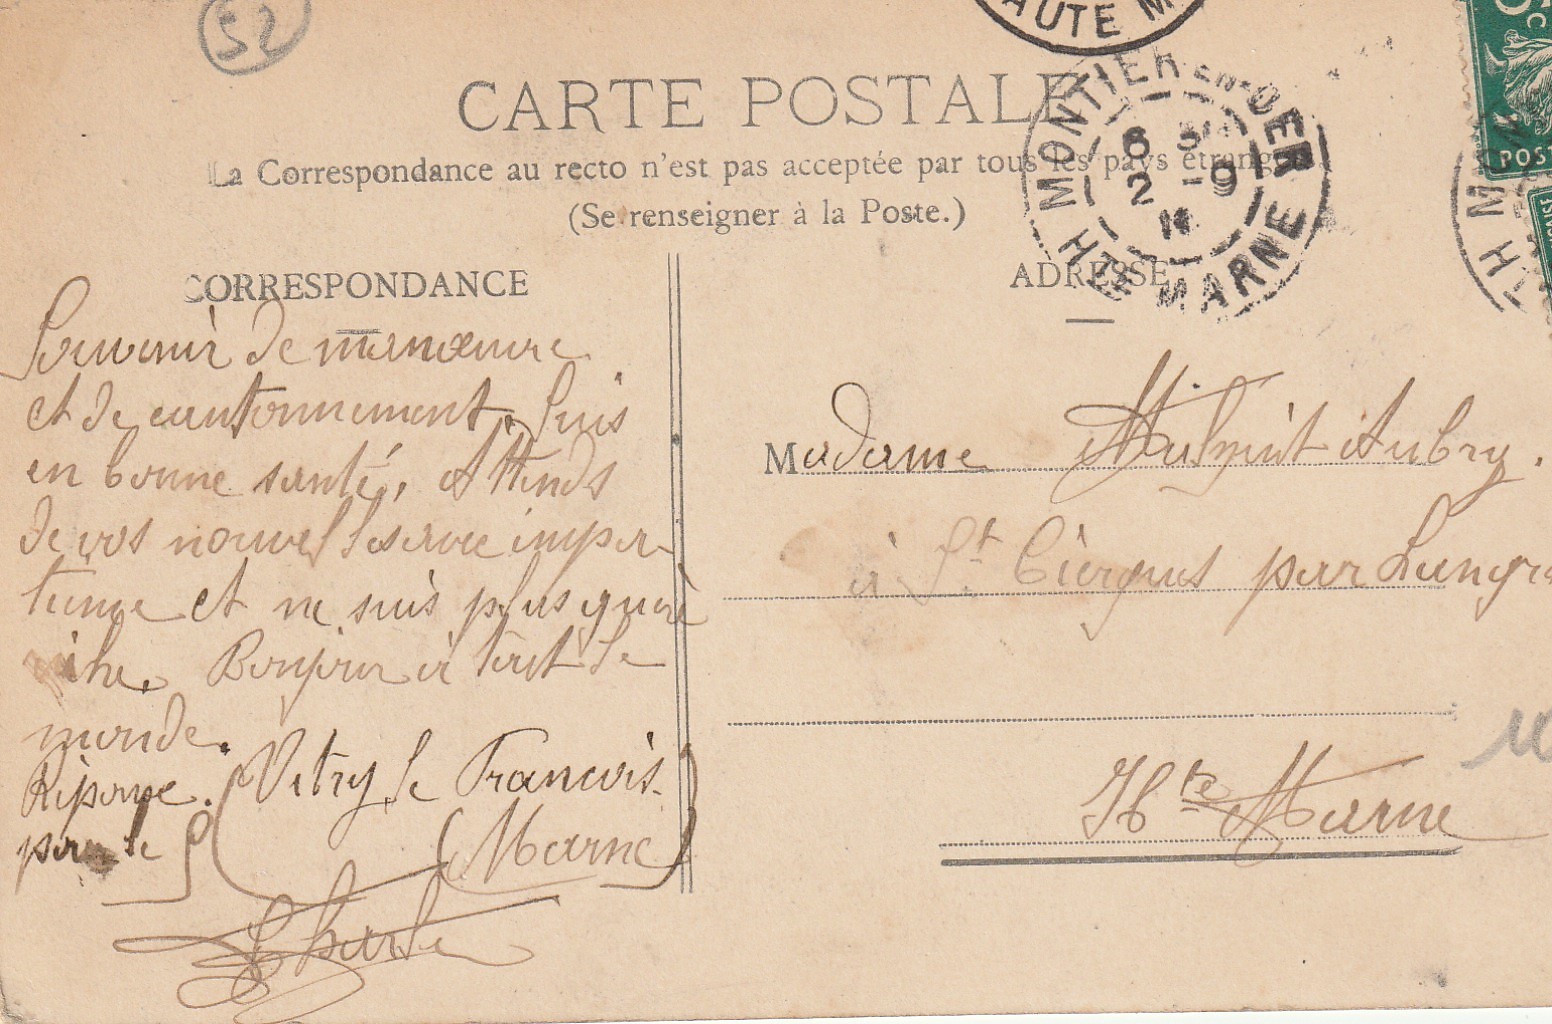 52
CARTE POSTALE
La Correspondance au recto n'est pas acceptée par tous les pays étrang
(Se renseigner à la Poste.)
CORRESPONDANCE
Souvenir de manœuvre
et de cantonnement. Suis
en bonne santé, Attends
de vos nouvelles avec impa-
tience et ne suis plus
Bonjour à tout le
monde.
Réponse.
Vitry le Francois.
(Marne)
Charle
ADRESSE
Madame Aubry.
à St Ciergues par Langres
Hte Marne
AUTE M
MONTIER EN DER
6
2 -9
HTE MARNE
H MON
POST